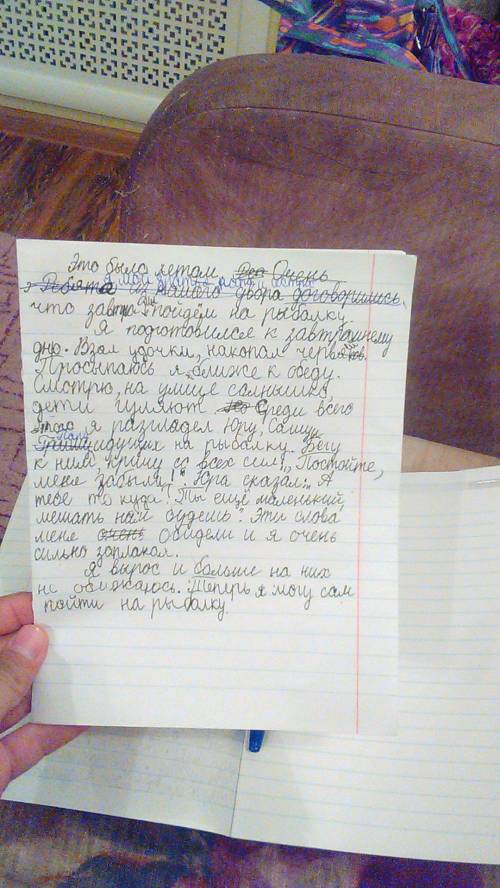 Это было летом. Очень
Ребята из нашего двора договорились,
что завтра пойдём на рыбалку.
Я подготовился к завтрашнему
дню. Взял удочки, накопал червяков.
Просыпаюсь я ближе к обеду.
Смотрю, на улице солнышко,
дети гуляют. Среди всего
этого я разглядел Юру, Сашу
идущих на рыбалку. Бегу
к ним, кричу со всех сил: „Постойте,
меня забыли!" Юра сказал: „А
тебе то куда! Ты ещё маленький,
мешать нам будешь". Эти слова
меня очень обидели и я очень
сильно заплакал.
Я вырос и больше на них
не обижаюсь. Теперь я могу сам
пойти на рыбалку.